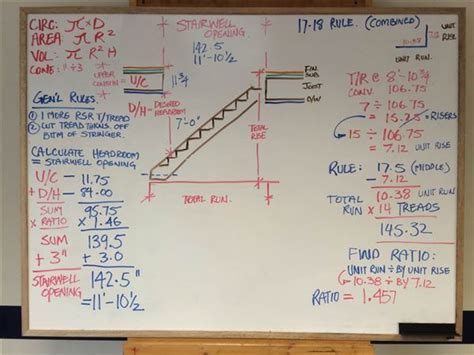 CIRC: π x D
AREA: π R²
VOL: π R² H
CONE: " ÷ 3
GEN'L RULES.
① 1 MORE RSR T/TREAD
② CUT TREAD THKNS. OFF
BTTM OF STRINGER.
CALCULATE HEADROOM
= STAIRWELL OPENING
U/C - 11.75
+ D/H - 84.00
SUM 95.75
x RATIO x 1.46
SUM 139.5
+ 3" + 3.0
STAIRWELL 142.5"
OPENING = 11'-10½
STAIRWELL
OPENING.
142.5
11'-10½
UPPER
= U/C
11¾
D/H = DESIRED
HEADROOM
7'-0"
FIN
SUB
JOIST
TOTAL
RISE
TOTAL RUN.
17-18 RULE. (COMBINED)
UNIT
RISE
10.38
UNIT RUN.
T/R @ 8'-10¾
CONV. 106.75
7 ÷ 106.75
= 15.25 RISERS
15 ÷ 106.75
= 7.12 UNIT RISE
RULE: 17.5 (MIDDLE)
- 7.12
10.38 UNIT RUN
TOTAL
RUN x 14 TREADS
145.32
FIND RATIO:
UNIT RUN ÷ BY UNIT RISE
10.38 ÷ BY 7.12
RATIO = 1.457